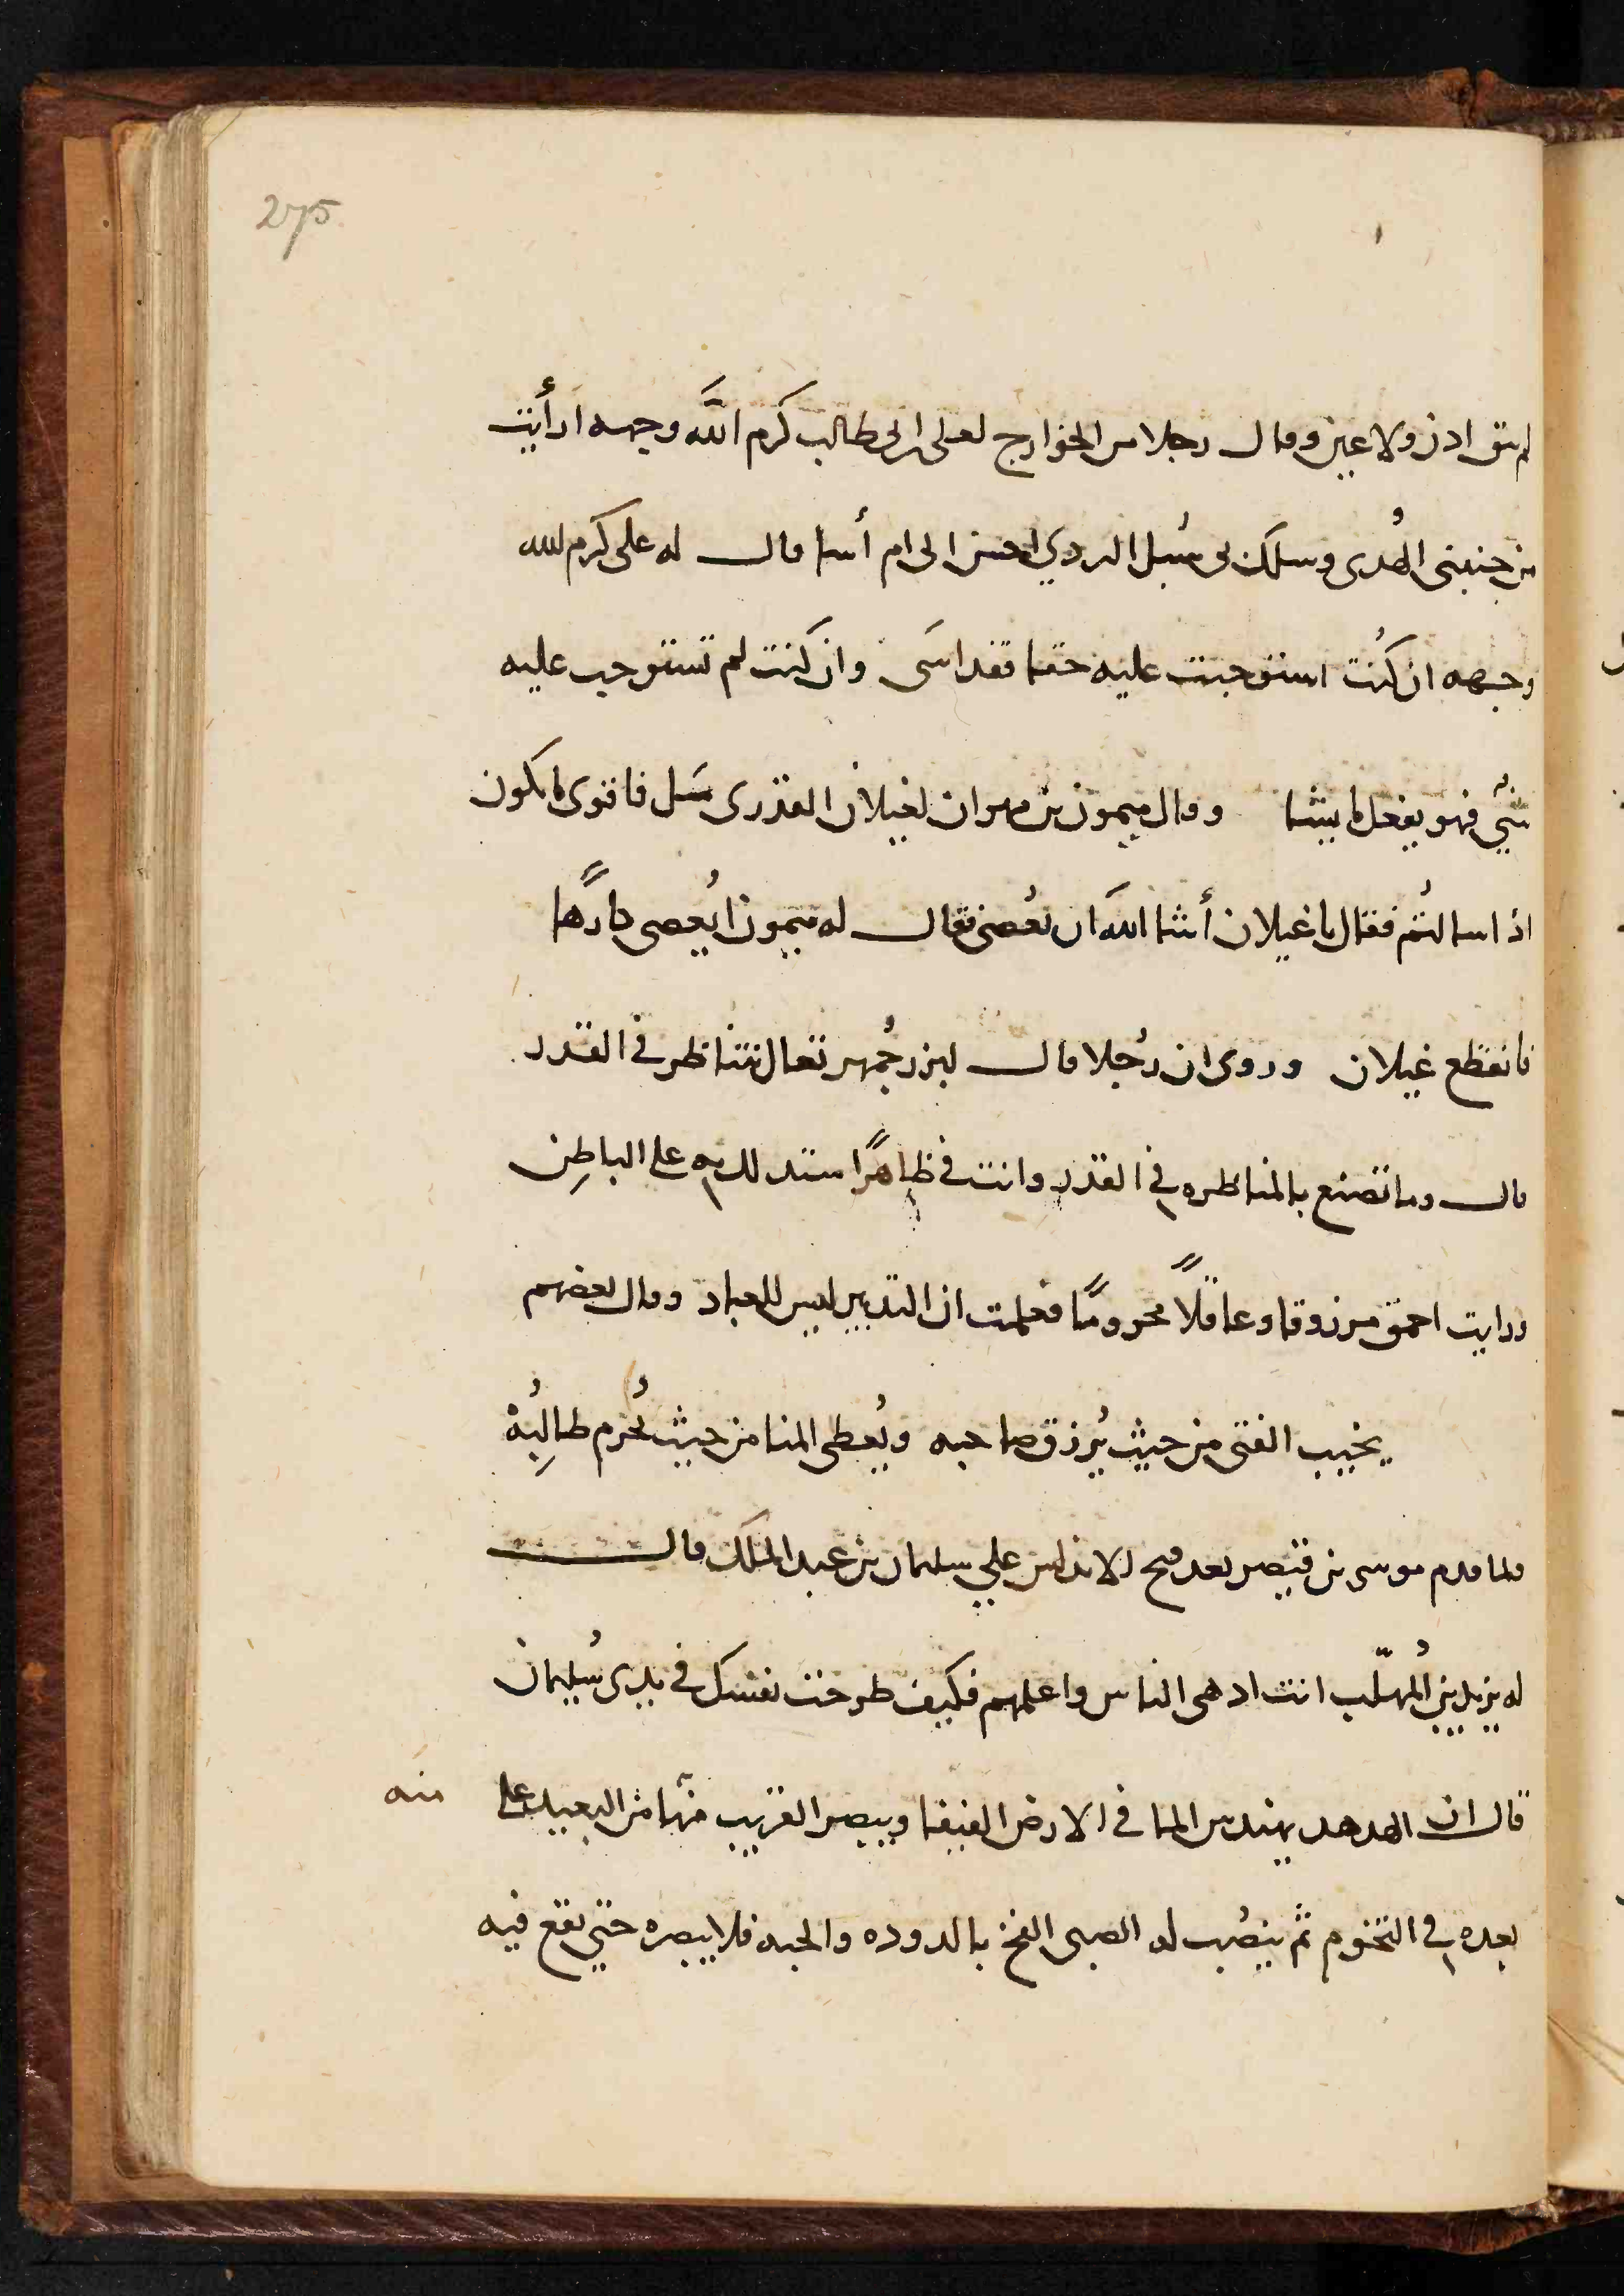 275
لم تبق اذن ولا عين وقال رجلا من الخوارج لعلى بن ابى طالب كرم اللَّه وجهه ارأيت
من جنبنى الهُدى وسلك بى سُبل الردي احسن الى ام أسا قال له على كرم الله
وجهه ان كنُت استوجبت عليه حقا فقد اسَى وان كنت لم تستوجب عليه
شيٌ فهو يفعل ما يشا وقال ميمون بن مهران لغيلان القدرى سَل فاقوى ما يكون
اذ اسالتُم فقال يا غيلان أشا اللَه ان يُعُصى فقال له ميمون ايُعصى كارهًا
فانقطع غيلان وروى ان رُجلا قال لبزرجُمهر تعال نتناظر في القدر
قال وما تصنع بالمناظره في القدر وانت في ظاهرًا ستدللت به على الباطِن
ورايت احمق مرزوقا وعاقلًا محرومًا فعلمت ان التدبير ليس للعباد وقال بعضهم
يخيب الفتى من حيث يُرزق صاحبه ويُعطى المنا من حيث يُحُرم طالِبُهْ
ولما قدم موسى بن قيصر بعد فتح الاندلس علي سليمان بن عبد الملك قال
له يزيد بن المُهلّب انت ادهى الناس واعلمهم فكيف طرحت نفسك في يدى سُليمان
قال ان الهدهد يهندس الما في الارض الفيفا ويبصر القريب منها من البعيد على منه
بعده في التخوم ثم ينصُب له الصبى الفخ بالدوده والحبه فلا يبصره حتي يقع فيه